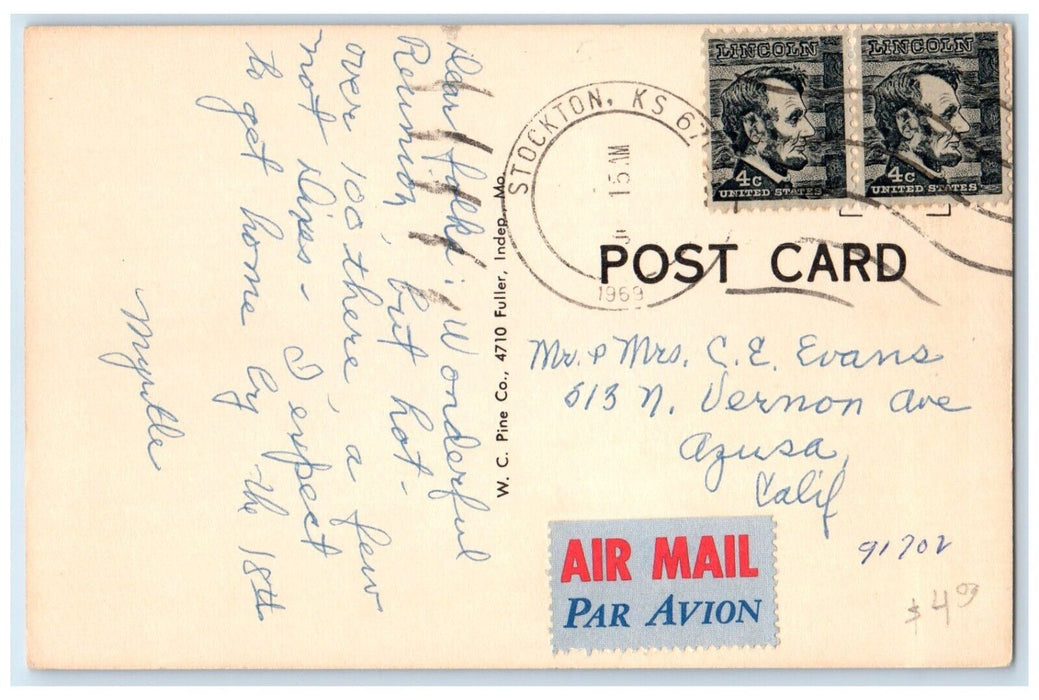 Dear folks: Wonderful
Reunion, but hot-
over 100 there, a few
not Dixs- I expect
to get home by the 18th
Myrtle
W. C. Pine Co., 4710 Fuller, Indep., Mo.
STOCKTON, KS 67
15 AM
1969
LINCOLN
4c
UNITED STATES
LINCOLN
4c
UNITED STATES
POST CARD
Mr. & Mrs. C. E. Evans
513 N. Vernon Ave
Azusa,
Calif
91702
AIR MAIL
PAR AVION
$4.00